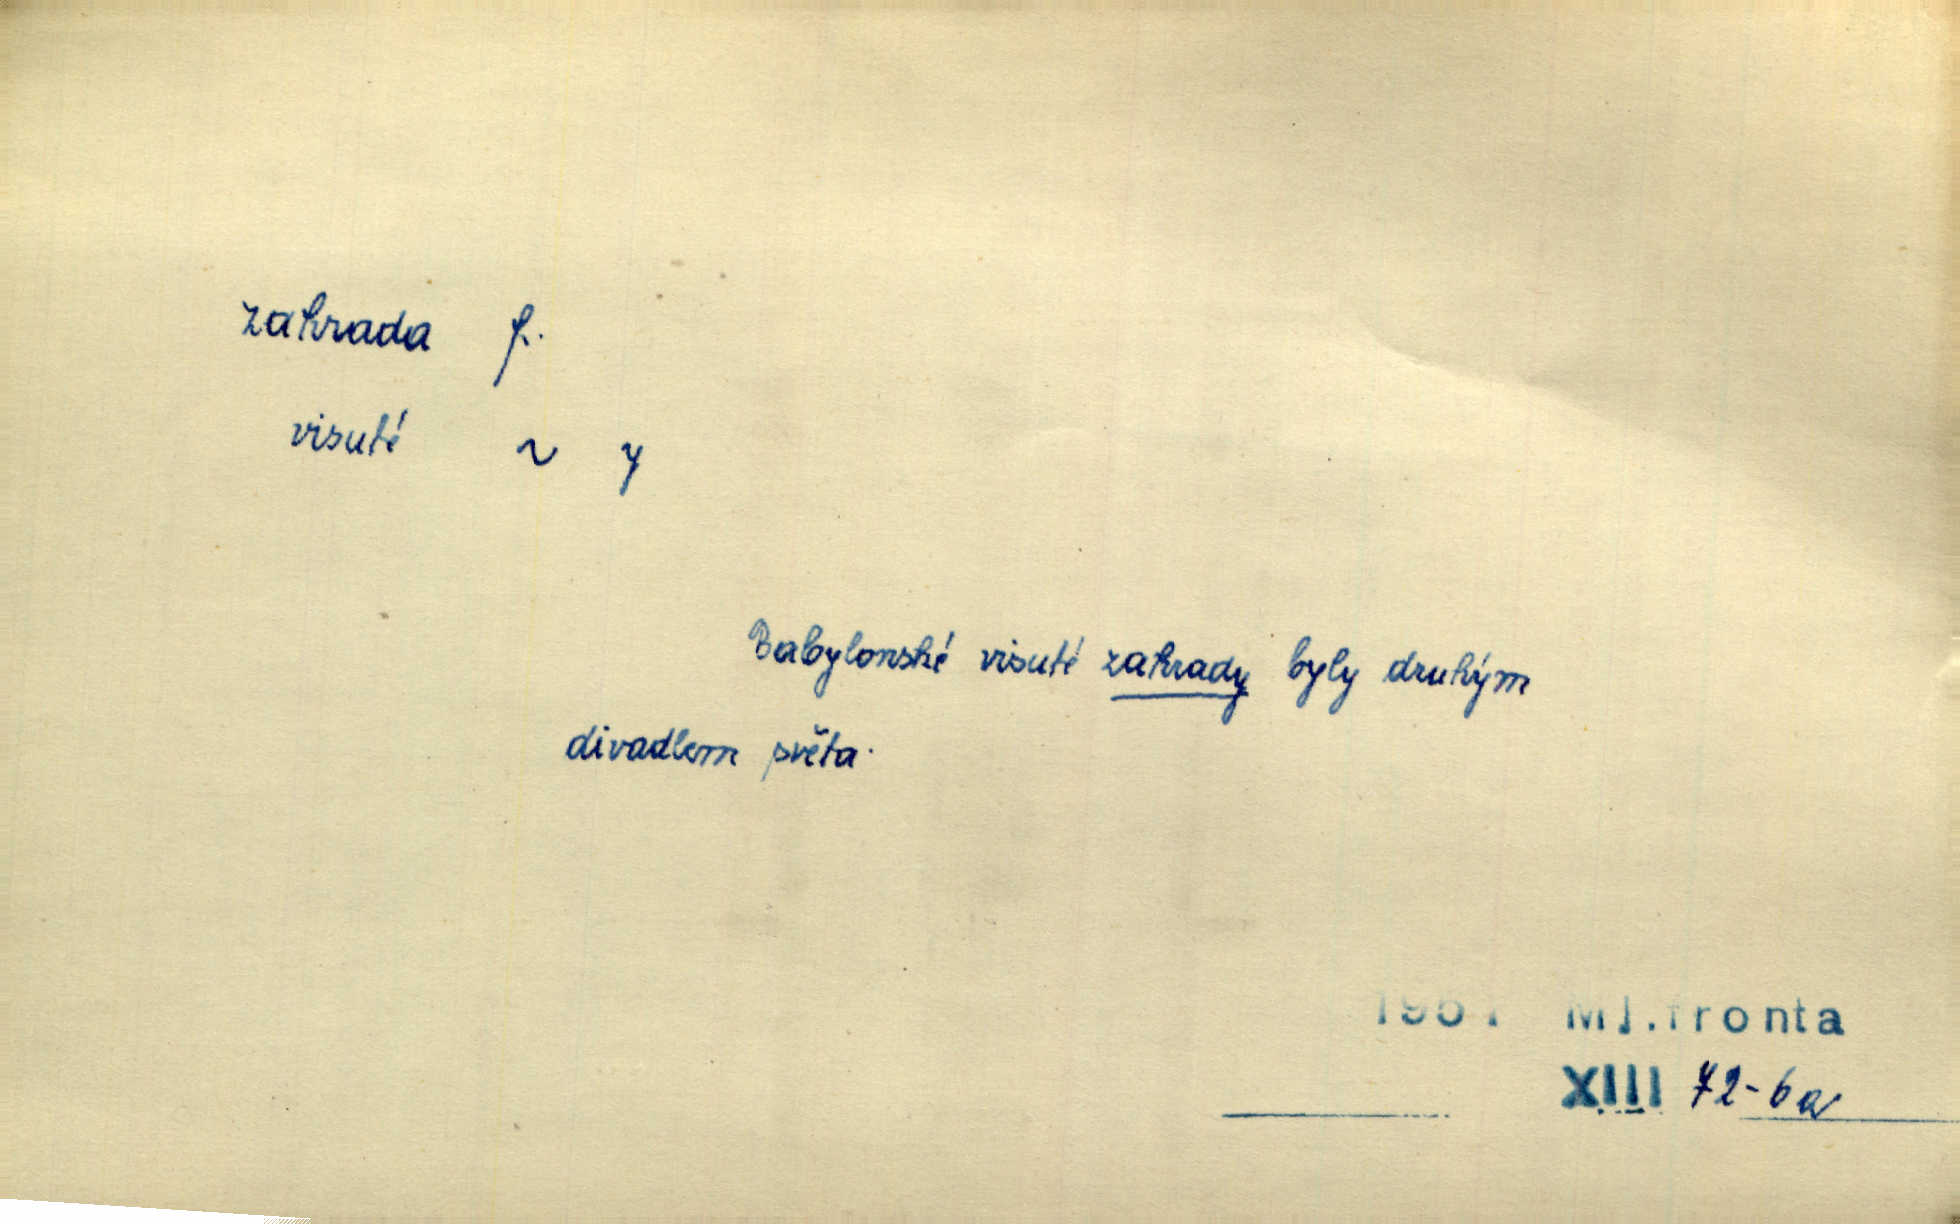 zahrada f.
visuté ~ y
Babylonské visuté zahrady byly druhým
divadlem světa.
Ml.fronta
XIII 72-6a